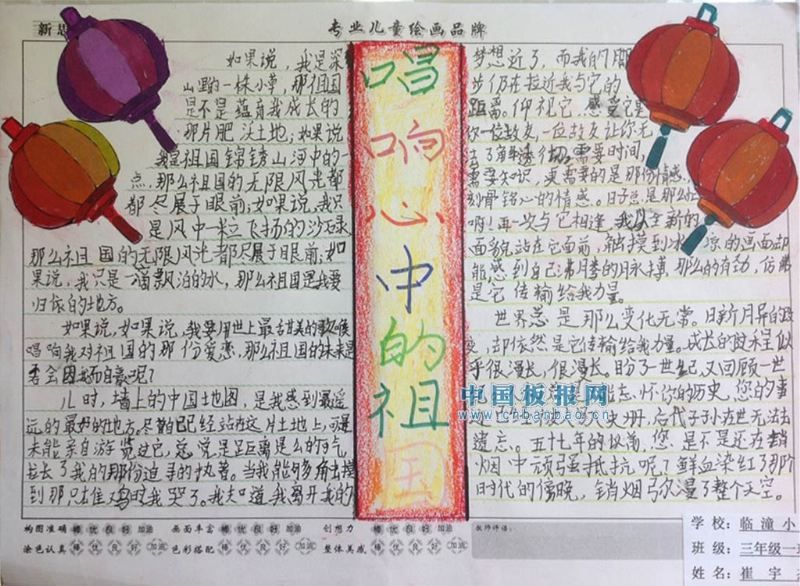 新思
专业儿童绘画品牌
唱响心中的祖国
如果说，我是深
山野的一株小草，那祖国
是不是蕴育我成长的
那片肥沃土地；如果说
我是祖国锦绣山河中的一
点，那么祖国的无限风光都
都尽展于眼前；如果说，我只
是风中一粒飞扬的沙砾，
那么祖国的无限风光都尽展于眼前；如
果说，我只是一滴飘泊的水，那么祖国是我要
归依的地方。
如果说，如果说，我要用世上最甜美的歌候
唱响我对祖国的那份爱恋，那么祖国的未来是
否会因我而自豪呢？
儿时，墙上的中国地图，是我感到最遥
远的最好的地方，尽管已经站在这片土地上，可是
未能亲自游览过它，总觉是距离是么的气，
拉长了我的那份追寻的执着。当我能够
到那只雄鸡时我哭了。我知道，我离开我的
梦想近了，而我的脚
步仍在拉近我与它的
距离。仰视它，感觉它是
你一位故友，一位故友让你无
需要时间，
需要知识，更需要的是那份情感，
刻骨铭心的情感。日子总是那么
啊！再一次与它相逢，我以全新的
面貌站在它面前，触摸到冰凉的画面却
能感到自己沸腾的脉搏，那么的有劲，仿佛
是它传输给我力量。
世界总是那么变化无常。日新月异的改
变，却依然是它传输给我力量。成长的过程似
乎很漫长，很漫长。盼了一世纪，又回顾一世
忘怀你的历史，您的事
史册，后代子子孙世无法去
遗忘。五十七年的权简，您是不是还在
烟中顽强抵抗呢？鲜血染红了那个
时代的傍晚，硝烟弓尔漫了整个天空。
中国板报网
www.cnbanbao.cn
构图准确 棒 优 良 好 加油 画面丰富 棒 优 良 好 加油 创想力 棒 优 良 好 加油 教师评语：
涂色认真 棒 优 良 好 加油 色彩搭配 棒 优 良 好 加油 整体美感 棒 优 良 好 加油
学校：临潼小
班级：三年级一
姓名：崔宇